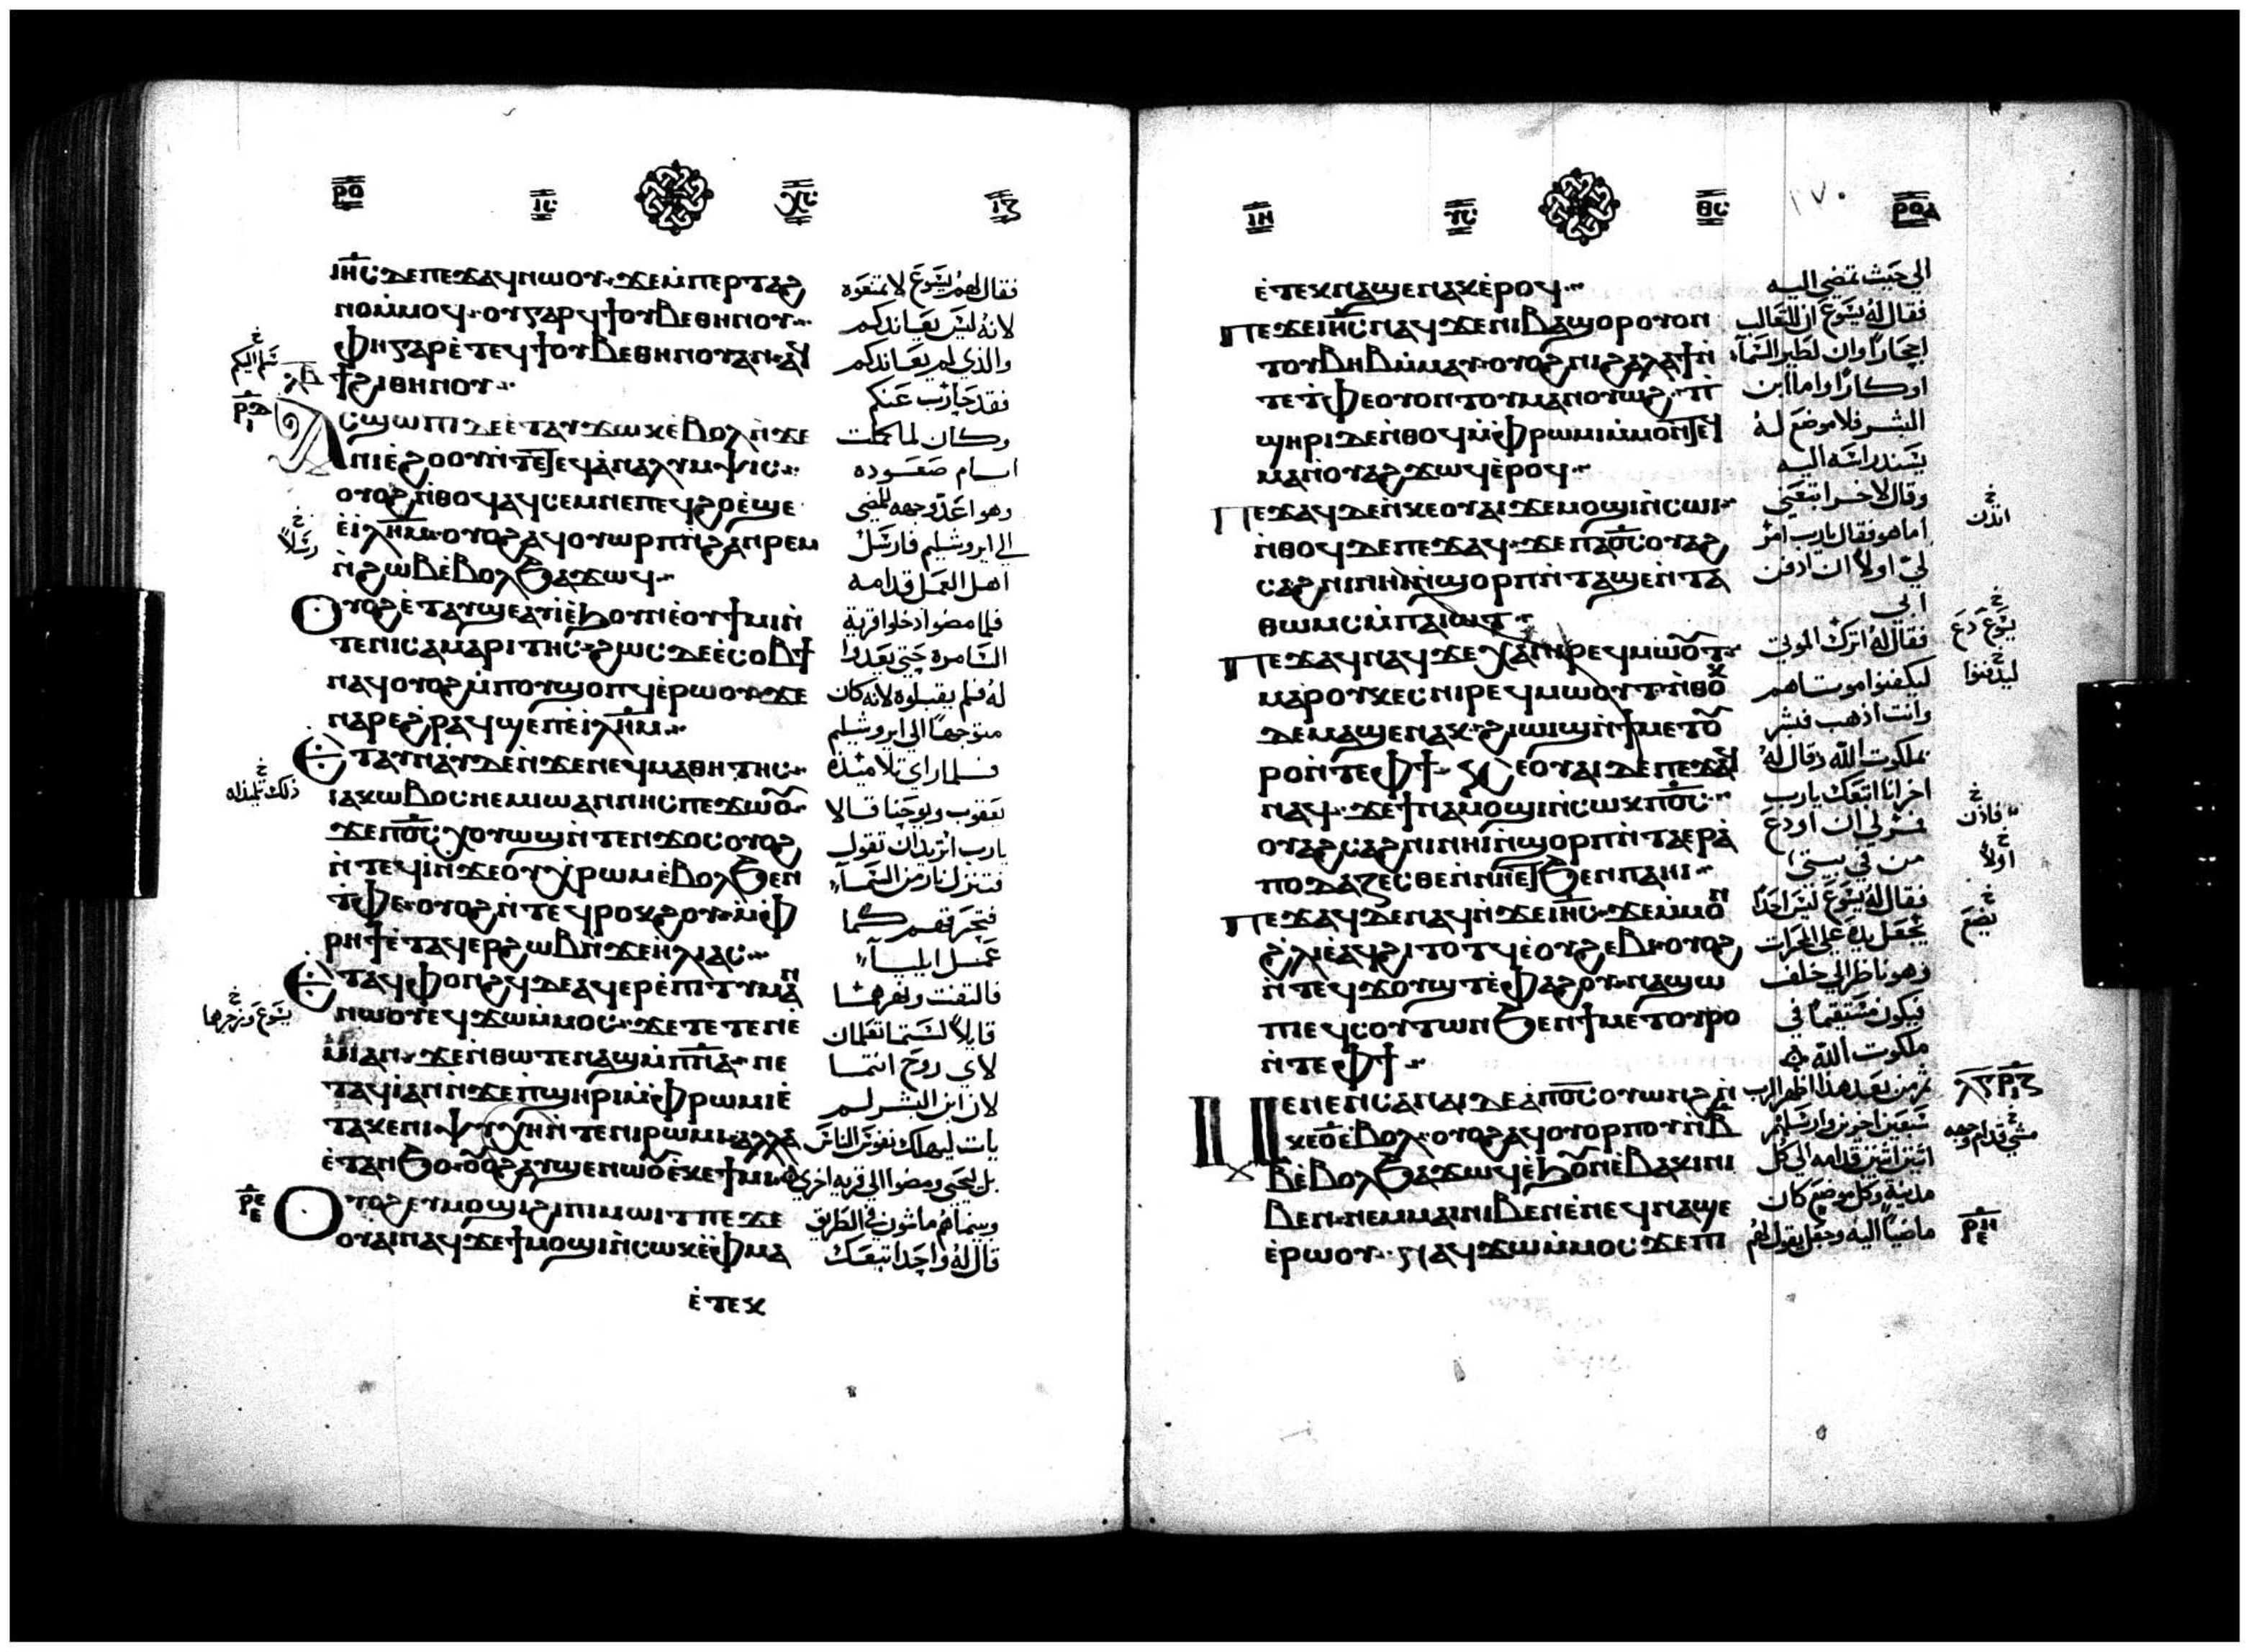 ⲣⲟ
ⲓⲏ̅ⲥ̅ ⲇⲉ ⲡⲉϫⲁϥ ⲛⲱⲟⲩ ϫⲉ ⲙ̀ⲡⲉⲣⲧⲁϩ
ⲛⲟ ⲙ̀ⲙⲟϥ ⲟⲩ ⲅⲁⲣ ϥϯ ⲟⲩⲃⲉ ⲑⲏⲛⲟⲩ
ⲫⲏ ⲅⲁⲣ ⲉ̀ⲧⲉ ϥϯ ⲟⲩⲃⲉ ⲑⲏⲛⲟⲩ ⲁⲛ ⲁϥ
ϯ ϩⲓ ⲑⲏⲛⲟⲩ
ⲁⲥϣⲱⲡⲓ ⲇⲉ ⲉ̀ⲧⲁⲩϫⲱⲕ ⲉ̀ⲃⲟⲗ ⲛ̀ϫⲉ
ⲛⲓⲉ̀ϩⲟⲟⲩ ⲛ̀ⲧⲉ ⲧⲉϥⲁ̀ⲛⲁⲗⲩⲙⲯⲓⲥ
ⲟⲩⲟϩ ⲛ̀ⲑⲟϥ ⲁϥⲥⲉⲙⲛⲉ ⲡⲉϥϩⲟ ⲉ̀ϣⲉ
ⲉ̀ⲓⲗⲏ̅ⲙ̅ ⲟⲩⲟϩ ⲁϥⲟⲩⲱⲣⲡ ⲛ̀ϩⲁⲛⲣⲉⲙ
ⲛ̀ϩⲱⲃ ⲉ̀ⲃⲟⲗ ϧⲁϫⲱϥ
ⲟⲩⲟϩ ⲉ̀ⲧⲁⲩϣⲉ ⲁⲩⲓ̀ ⲉ̀ϧⲟⲩⲛ ⲉ̀ⲟⲩϯⲙⲓ ⲛ̀
ⲧⲉ ⲛⲓⲥⲁⲙⲁⲣⲓⲧⲏⲥ ϩⲱⲥ ⲇⲉ ⲉ̀ⲥⲟⲃϯ
ⲛⲁϥ ⲟⲩⲟϩ ⲙ̀ⲡⲟⲩϣⲟⲡϥ ⲉ̀ⲣⲱⲟⲩ ϫⲉ
ⲛⲁⲣⲉ ϩ̀ⲣⲁϥ ϣⲉ ⲡⲉ ⲉ̀ⲓⲗⲏ̅ⲙ̅
ⲉⲧⲁⲩⲛⲁⲩ ⲇⲉ ⲛ̀ϫⲉ ⲛⲉϥⲙⲁⲑⲏⲧⲏⲥ
ⲓⲁⲕⲱⲃⲟⲥ ⲛⲉⲙ ⲓⲱⲁⲛⲛⲏⲥ ⲡⲉϫⲱⲟⲩ
ϫⲉ ⲡ̅ⲟ̅ⲥ̅ ⲭⲟⲩⲱϣ ⲛ̀ⲧⲉⲛϫⲟⲥ ⲟⲩⲟϩ
ⲛ̀ⲧⲉϥⲓ̀ ⲛ̀ϫⲉ ⲟⲩⲭ̀ⲣⲱⲙ ⲉ̀ⲃⲟⲗ ϧⲉⲛ
ⲧ̀ⲫⲉ ⲟⲩⲟϩ ⲛ̀ⲧⲉϥⲣⲟⲕϩⲟⲩ ⲙ̀ⲫ̀
ⲣⲏϯ ⲉ̀ⲧⲁϥⲉⲣϩⲱⲃ ⲛ̀ϫⲉ ⲏⲗⲓⲁⲥ
ⲉⲧⲁϥⲫⲟⲛϩϥ ⲇⲉ ⲁϥⲉⲣⲉ̀ⲡⲓⲧⲓⲙⲁⲛ
ⲛⲱⲟⲩ ⲉϥϫⲱ ⲙ̀ⲙⲟⲥ ϫⲉ ⲧⲉⲧⲉⲛⲉ̀
ⲙⲓ ⲁⲛ ϫⲉ ⲛ̀ⲑⲱⲧⲉⲛ ⲁϣ ⲙ̀ⲡ̅ⲛ̅ⲁ̅ ⲛⲉ
ⲧⲁϥⲓ̀ ⲁⲛ ⲛ̀ϫⲉ ⲡ̀ϣⲏⲣⲓ ⲙ̀ⲫ̀ⲣⲱⲙⲓ ⲉ̀
ⲧⲁⲕⲉ ⲛⲓⲯⲩⲭⲏ ⲛ̀ⲧⲉ ⲛⲓⲣⲱⲙⲓ ⲁⲗⲗⲁ
ⲉ̀ⲧⲁⲛϧⲟ ⲟⲩⲟϩ ⲁⲩϣⲉⲛⲱⲟⲩ ⲉ̀ⲕⲉϯⲙⲓ
ⲟⲩⲟϩ ⲉⲩⲙⲟϣⲓ ϩⲓ ⲡⲓⲙⲱⲓⲧ ⲡⲉϫⲉ
ⲟⲩⲁⲓ ⲛⲁϥ ϫⲉ ϯⲙⲟϣⲓ ⲛ̀ⲥⲱⲕ ⲉ̀ⲫ̀ⲙⲁ
ⲉ̀ⲧⲉⲕ
فقال لهم يسوع لا تمنعوه
لانه ليس يعاندكم
والذي لم يعاندكم
فقد حارب عنكم
وكان لما كملت
ايام صعوده
وهو اعد وجهه للمضي
الي ايروشليم فارسل
اهل العمل قدامه
فلما مضوا دخلوا قرية
السامره حتي يعدوا
له فلم يقبلوه لانه كان
متوجها الي ايروشليم
فلما راي تلاميذه
يعقوب ويوحنا قالا
يارب اتريد ان نقول
فتنزل نار من السماء
فتحرقهم كما
عمل ايلياء
فالتفت ونهرهما
قايلا لستما تعلمان
لاي روح انتما
لان ابن البشر لم
يات ليهلك نفوس الناس
بل ليحيي ومضوا الي قرية اخري
وبينما هم ماشون في الطريق
قال له واحد اتبعك
ⲣⲟⲁ
١٧٠
ⲉ̀ⲧⲉⲕⲛⲁϣⲉⲛⲁⲕ ⲉ̀ⲣⲟϥ
ⲡⲉϫⲉ ⲓⲏ̅ⲥ̅ ⲛⲁϥ ϫⲉ ⲛⲓⲃⲁϣⲟⲣ ⲟⲩⲟⲛ
ⲧⲟⲩⲃⲏⲃ ⲙ̀ⲙⲁⲩ ⲟⲩⲟϩ ⲛⲓϩⲁⲗⲁϯ ⲛ̀
ⲧⲉ ⲧ̀ⲫⲉ ⲟⲩⲟⲛⲧⲟⲩ ⲙⲁⲛⲟⲩⲱϩ ⲡ̀
ϣⲏⲣⲓ ⲇⲉ ⲛ̀ⲑⲟϥ ⲙ̀ⲫ̀ⲣⲱⲙⲓ ⲙ̀ⲙⲟⲛⲧⲉϥ
ⲙⲁ ⲛ̀ⲟⲩⲁϩ ϫⲱϥ ⲉ̀ⲣⲟϥ
ⲡⲉϫⲁϥ ⲇⲉ ⲛ̀ⲕⲉⲟⲩⲁⲓ ϫⲉ ⲙⲟϣⲓ ⲛ̀ⲥⲱⲓ
ⲛ̀ⲑⲟϥ ⲇⲉ ⲡⲉϫⲁϥ ϫⲉ ⲡ̅ⲟ̅ⲥ̅ ⲟⲩⲁϩ
ⲥⲁϩⲛⲓ ⲛⲏⲓ ⲛ̀ϣⲟⲣⲡ ⲛ̀ⲧⲁϣⲉ ⲛ̀ⲧⲁ
ⲑⲱⲙⲥ ⲙ̀ⲡⲁⲓⲱⲧ
ⲡⲉϫⲁϥ ⲛⲁϥ ϫⲉ ⲭⲁ ⲛⲓⲣⲉϥⲙⲱⲟⲩⲧ
ⲙⲁⲣⲟⲩⲕⲉⲥ ⲛⲓⲣⲉϥⲙⲱⲟⲩⲧ ⲛ̀ⲑⲟⲕ
ⲇⲉ ⲙⲁϣⲉⲛⲁⲕ ϩⲓⲱⲓϣ ⲛ̀ϯⲙⲉⲧⲟⲩ
ⲣⲟ ⲛ̀ⲧⲉ ⲫϯ ⲕⲉⲟⲩⲁⲓ ⲇⲉ ⲡⲉϫⲁϥ
ⲛⲁϥ ϫⲉ ϯⲛⲁⲙⲟϣⲓ ⲛ̀ⲥⲱⲕ ⲡ̅ⲟ̅ⲥ̅
ⲟⲩⲁϩⲥⲁϩⲛⲓ ⲛⲏⲓ ⲛ̀ϣⲟⲣⲡ ⲛ̀ⲧⲁⲉⲣⲁ̀
ⲡⲟⲇⲁⲍⲉⲥⲑⲉ ⲛ̀ⲛⲏⲉⲧϧⲉⲛ ⲡⲁⲏⲓ
ⲡⲉϫⲁϥ ⲇⲉ ⲛⲁϥ ⲛ̀ϫⲉ ⲓⲏ̅ⲥ̅ ϫⲉ ⲙ̀ⲙⲟⲛ
ϩ̀ⲗⲓ ⲉ̀ⲁϥϩⲓ ⲧⲟⲧϥ ⲉ̀ⲟⲩϩⲉⲃⲓ ⲟⲩⲟϩ
ⲛ̀ⲧⲉϥϫⲟⲩϣⲧ ⲉ̀ⲫⲁϩⲟⲩ ⲛⲁϣⲱ
ⲡⲓ ⲉϥⲥⲟⲩⲧⲱⲛ ϧⲉⲛ ϯⲙⲉⲧⲟⲩⲣⲟ
ⲛ̀ⲧⲉ ⲫϯ
ⲙⲉⲛⲉⲛⲥⲁ ⲛⲁⲓ ⲇⲉ ⲁ̀ⲡ̅ⲟ̅ⲥ̅ ⲟⲩⲱⲛϩ ⲛ̀
ⲕⲉⲟ̅ ⲉ̀ⲃⲟⲗ ⲟⲩⲟϩ ⲁϥⲟⲩⲟⲣⲡⲟⲩ ⲛ̀ⲃ̅
ⲃ̅ ⲉ̀ⲃⲟⲗ ϧⲁϫⲱϥ ⲉ̀ϧⲟⲩⲛ ⲉ̀ⲃⲁⲕⲓ ⲛⲓ
ⲃⲉⲛ ⲛⲉⲙ ⲙⲁⲓ ⲛⲓⲃⲉⲛ ⲉ̀ⲛⲉϥⲛⲁϣⲉ
ⲉ̀ⲣⲱⲟⲩ ⲛⲁϥϫⲱ ⲙ̀ⲙⲟⲥ ϫⲉ ⲡⲓ
الي حيث تمضي اليه
فقال له يسوع ان للثعالب
اجحارا وان لطير السماء
اوكارا واما ابن
البشر فلا موضع له
يسند راسه اليه
وقال لاخر اتبعني
اما هو فقال يارب امر
لي اولا ان ادفن
ابي
فقال له اترك الموتي
ليكفنوا موتاهم
وانت اذهب فبشر
بملكوت الله وقال له
اخر انا اتبعك يارب
فمر لي ان اودع
من في بيتي
فقال له يسوع ليس احدا
يجعل يده علي المحرات
وهو ناظر الي خلف
فيكون مستقيما في
ملكوت الله
ثم من بعد هذا اظهر الرب
سبعين اخرين وارسلهم
اثنين اثنين قدامه الي كل
مدينة وكل موضع كان
ماضيا اليه وجعل يقول لهم